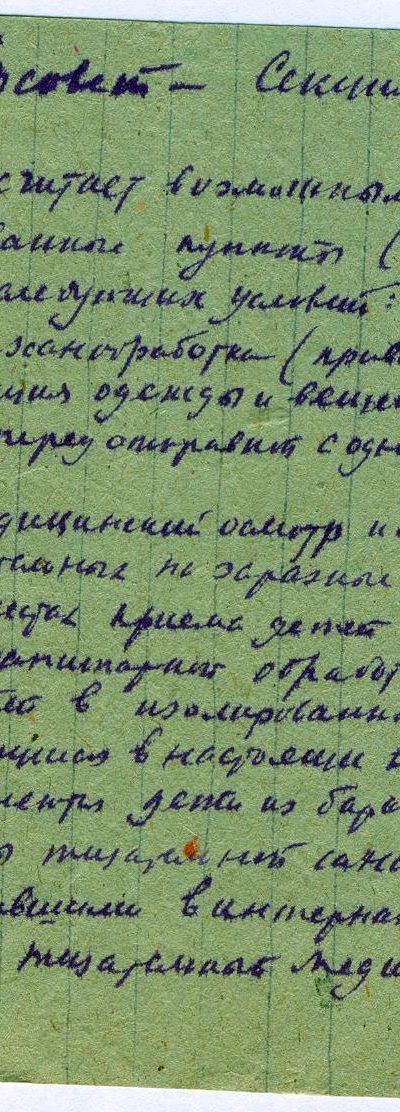 совет — Секци
считает возможным
ванные пункты (
следующих условий:
санобработка (прив
ция одежды и веще
перед отправкит с одн
дицинский осмотр и
тельных на заразные
местах приема детей
санитарной обработ
в изолированн
щиися в настоящи в
центр дети из бара
тщательной сано
вшими в интерна
тщательный меди